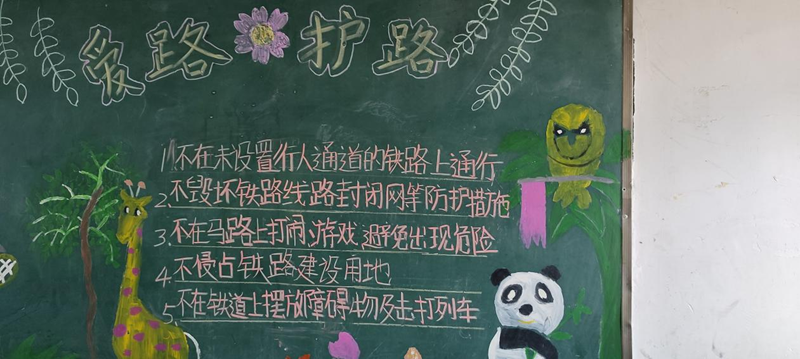 爱路护路
1.不在未设置行人通道的铁路上通行
2.不毁坏铁路线路封闭网等防护措施
3.不在马路上打闹、游戏避免出现危险
4.不侵占铁路建设用地
5.不在铁道上摆放障碍物及击打列车